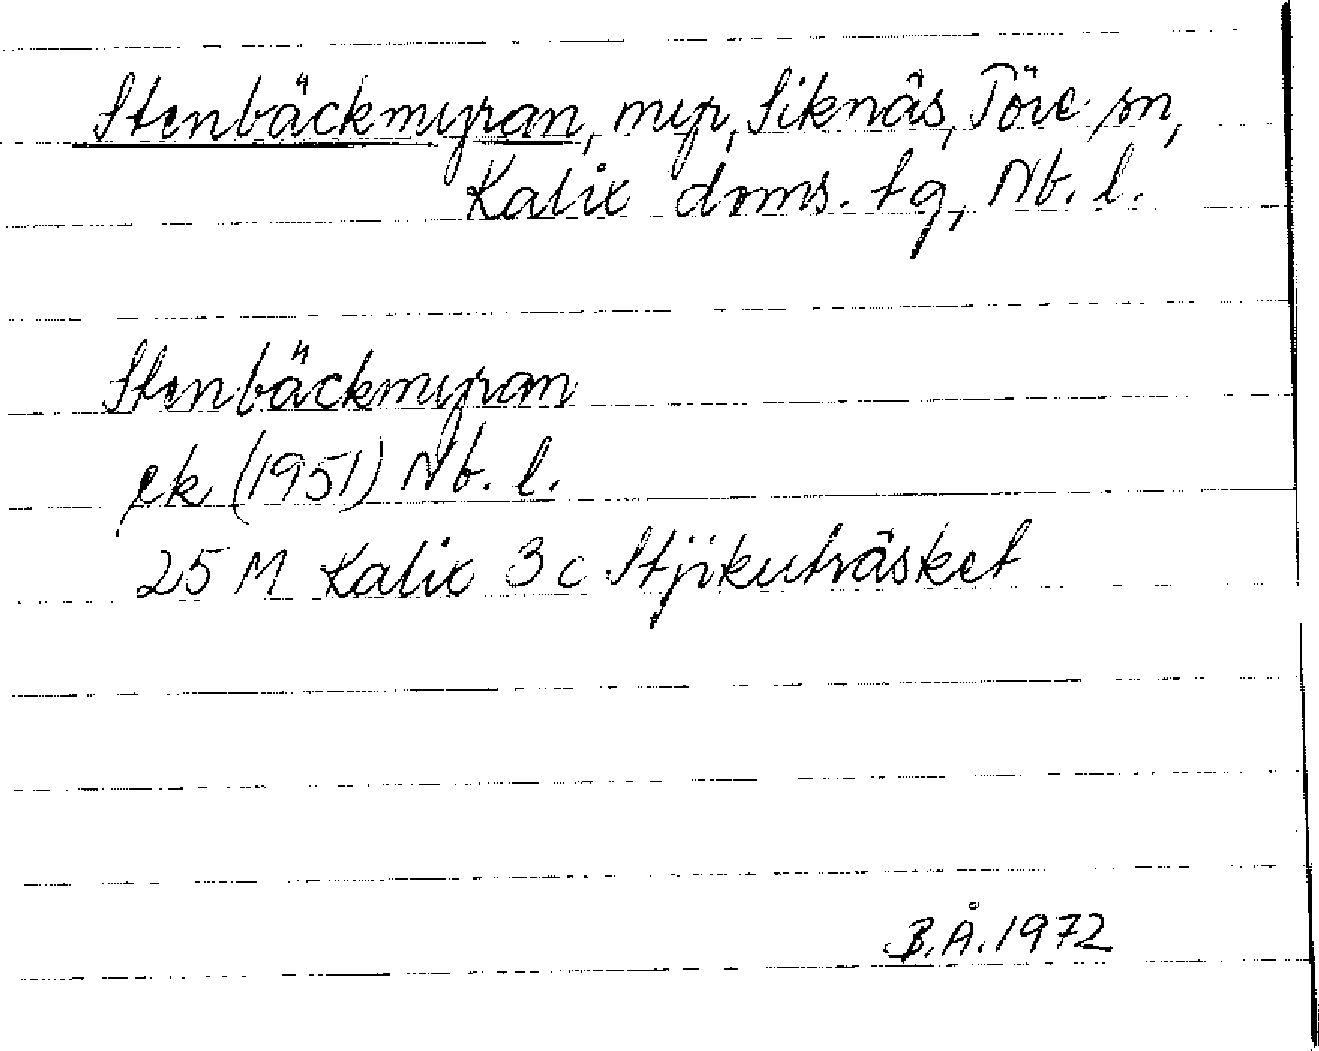 Stenbäckmyran, myr, Siknäs, Töre sn,
Kalix doms. tg, Nb. l.
Stenbäckmyran
ek (1951) Nb. l.
25 M Kalix 3c Stjikuträsket
B.Å. 1972